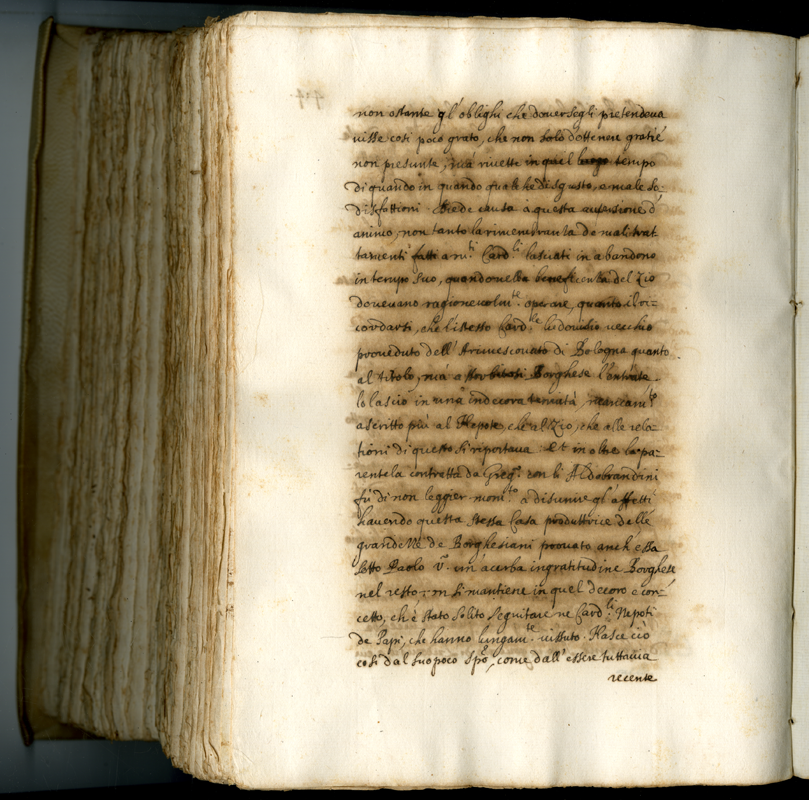 non ostante gl'oblighi che doversegli pretendeva
visse così poco grato, che non solo d'ottenere gratie
non presunse, mà rivette in quel tempo
di quando in quando qualche disgusto, e male so-
disfattioni
animo, non tanto la rimembranza de mali trat-
tamenti fatti a Card.li lasciati in abandono
in tempo suo, quando nella beneficenza del Zio
dovevano ragionevolm.te operare, quanto il ri-
cordarsi, che l'istesso Card.le Ludovisio vecchio
proveduto dell'Arcivescovato di Bologna quanto
al titolo, mà a Borghese l'entrate
lo lasciò in una indecora
ascritto più al Nepote, che al Zio, che alle rela-
tioni di questo si riportava. Et in oltre la pa-
rentela contratta da Greg.o con li Aldobrandini
fù di non leggier mom.to a disunire gl'affetti
havendo questa stessa Casa produttrice delle
grandezze de Borghesiani provato anch'essa
sotto Paolo V.o un'acerba ingratitudine Borghese
nel resto si mantiene in quel decoro e con-
cetto, ch'è stato solito seguitare ne Card.li Nepoti
de Papi, che hanno lungam.te vissuto. Nasce ciò
così dal suo poco come dall'essere tuttavia
recente